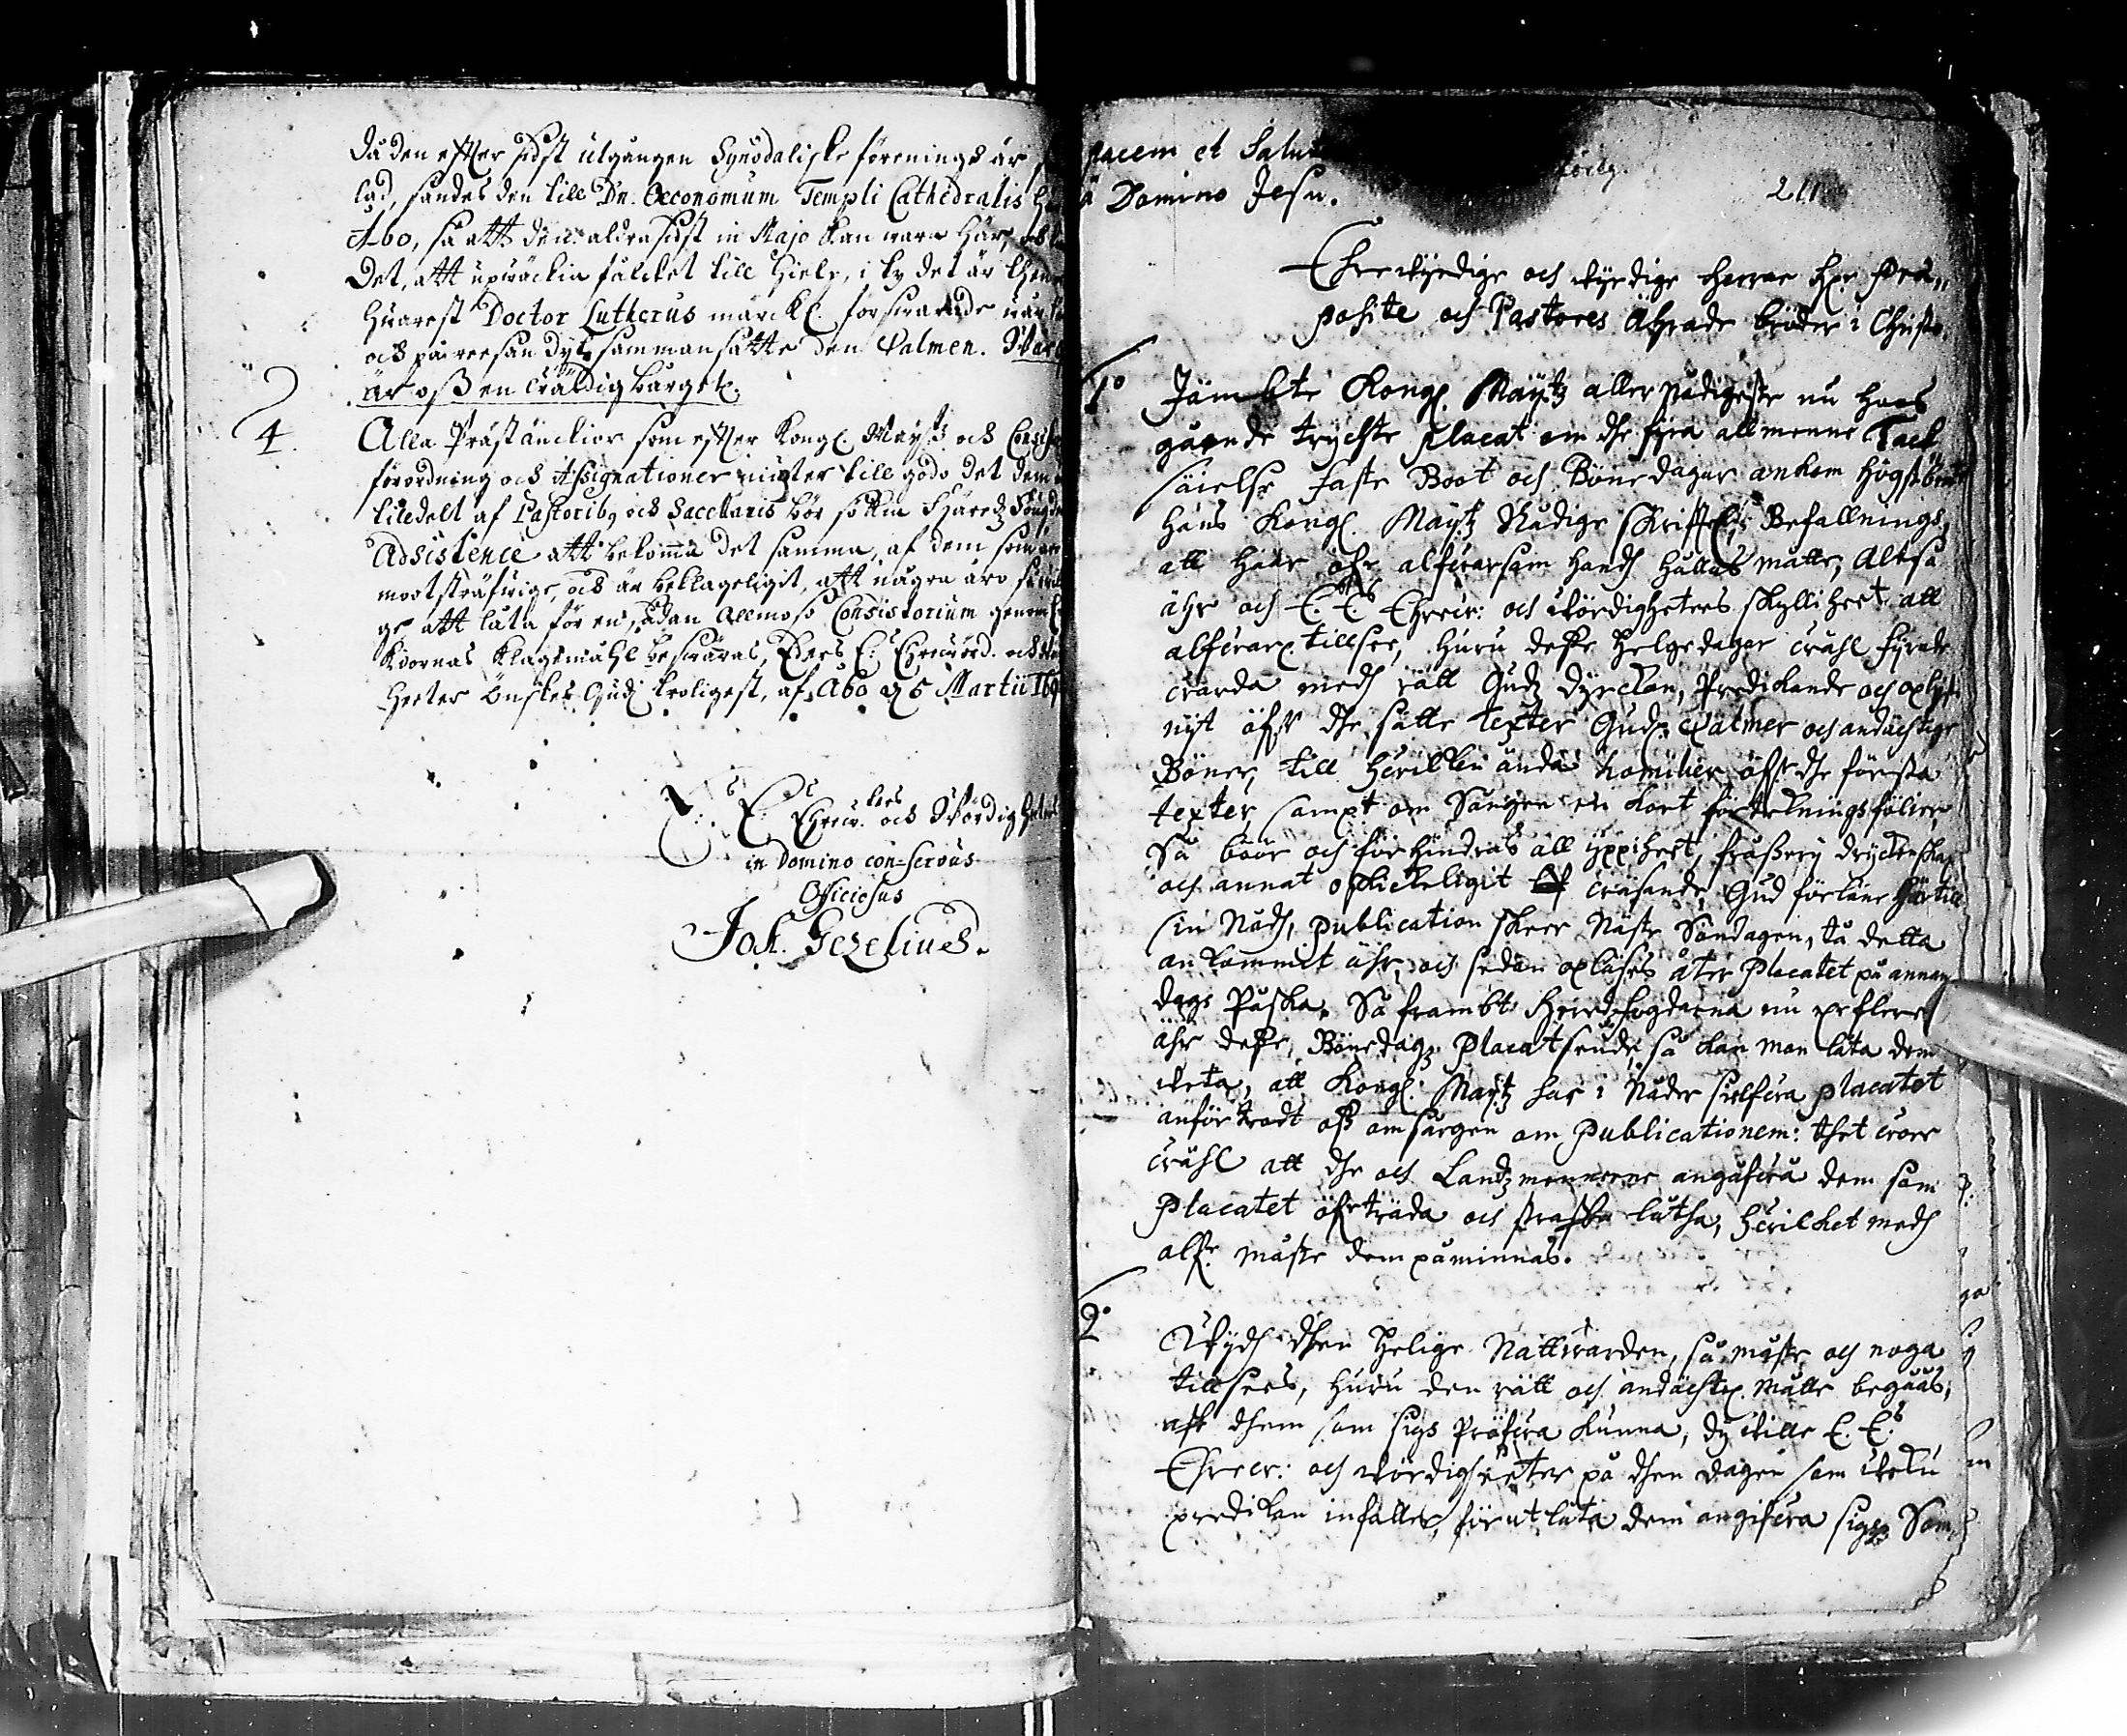 då den effter sidst utgångne Synodaliske förenings är
lad, sändes den till Dn. Oeconomum Templi Cathedralis
Åbo, så att den aldrasidst in Majo kan wara här, och
Det, att upwäckia fålcket till Giele, i ty det är
hwarest Doctor Lutherus märckl. förswarade
och på reesan dyt sammansatte den Psalmen. Wår G
är oß en wäldig borg etc.
4. Alla Präst änckior som effter Kongl. May:tz och Consist
förordning och Assignationer niuter till godo det dem
tilldelt af Pastorib9 och Sacellanis bör sökia Häredz Fougde
Adsistence att bekomma det samma, af dem som
mootsträfwige, och är beklageligit, att några äro så
ge att låta för en sådan Allmoso Consistorium genom E
kiornas klagemåhl beswäras, Eders E: Ehrewörd. och
heeter önskes Gudz troligest, af Åbo d 5 Martii 169
E. E. Ehrew. och Wördigheters
in Domino con-servus
Officiosus
Joh. Gezelius.
pacem et Salut
à Domino Jesu.
211
Ehrewyrdige och wyrdige Herrar Hr. Præ-
posite och Pastores Ährade bröder i Christo.
1o Jämbte Kongl. Maytz aller nådigeste nu hoos
gående tryckte placat om dhe fyra allmenne Tack
säielse Faste Boot och Bönedagar ankom högstbem:te
hans Kongl. Maytz Nådige skriftel. Befallnings,
att häär öfr alfwarsam handh hållas måtte; Altså
ähr och E. E:s Ehrew: och wördigheters skylliheet att
alfwarl. tillsee, huru desse helgedagar wähl fyrade
warda medh rätt Gudz dyrckan, Predikande och oplys
nist öfwr dhe satte texter Gudl. Psalmer och andächtige
Böner, till hwilken ända homilier öfr dhe första
texter, sampt om Sången en kort förtekning fölier
Så böör och förhindras all yppiheet, fråßery dryckenskap
och annat oskickeligit wäsende, Gud förläne härtill
sin Nådh, publication skeer Näste Söndagen, tå detta
ankommit ähr, och sedan opläses åter Placatet på annan
dags Påska. Så frambt Heredzfogdarna nu per flere
åhr desse Bönedagz Placat sände, så kan man låta dem
weta, att Kongl. Maytz har i Nåder sielfwa placatet
anförtrodt oß omsorgen om Publicationem: thet wore
wähl att dhe och Landzmennerne angåfwa dem som
Placatet öfwrträda och straffa låtha, hwilcket medh
alfr. måste dem påminnas.
2o Widh dhen helige Nattwarden, så måste och noga
tillsees, huru den rätt och andächtel. måtte begåås,
aff dhem som sigh pröfwa kunna, dy wille E. E:s
Ehrew: och wördigheeter på dhen dagen som weku
predikan infaller, förut låta dem angifwa sigh Som